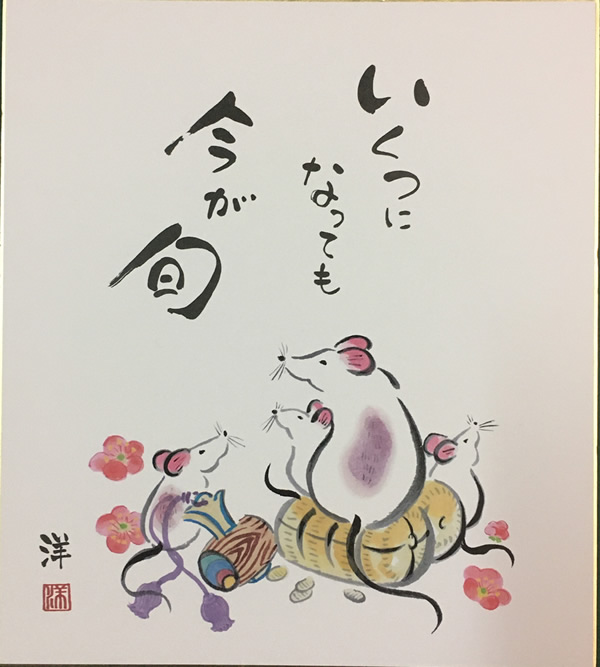 いくつに
なっても
今が旬
洋
洋